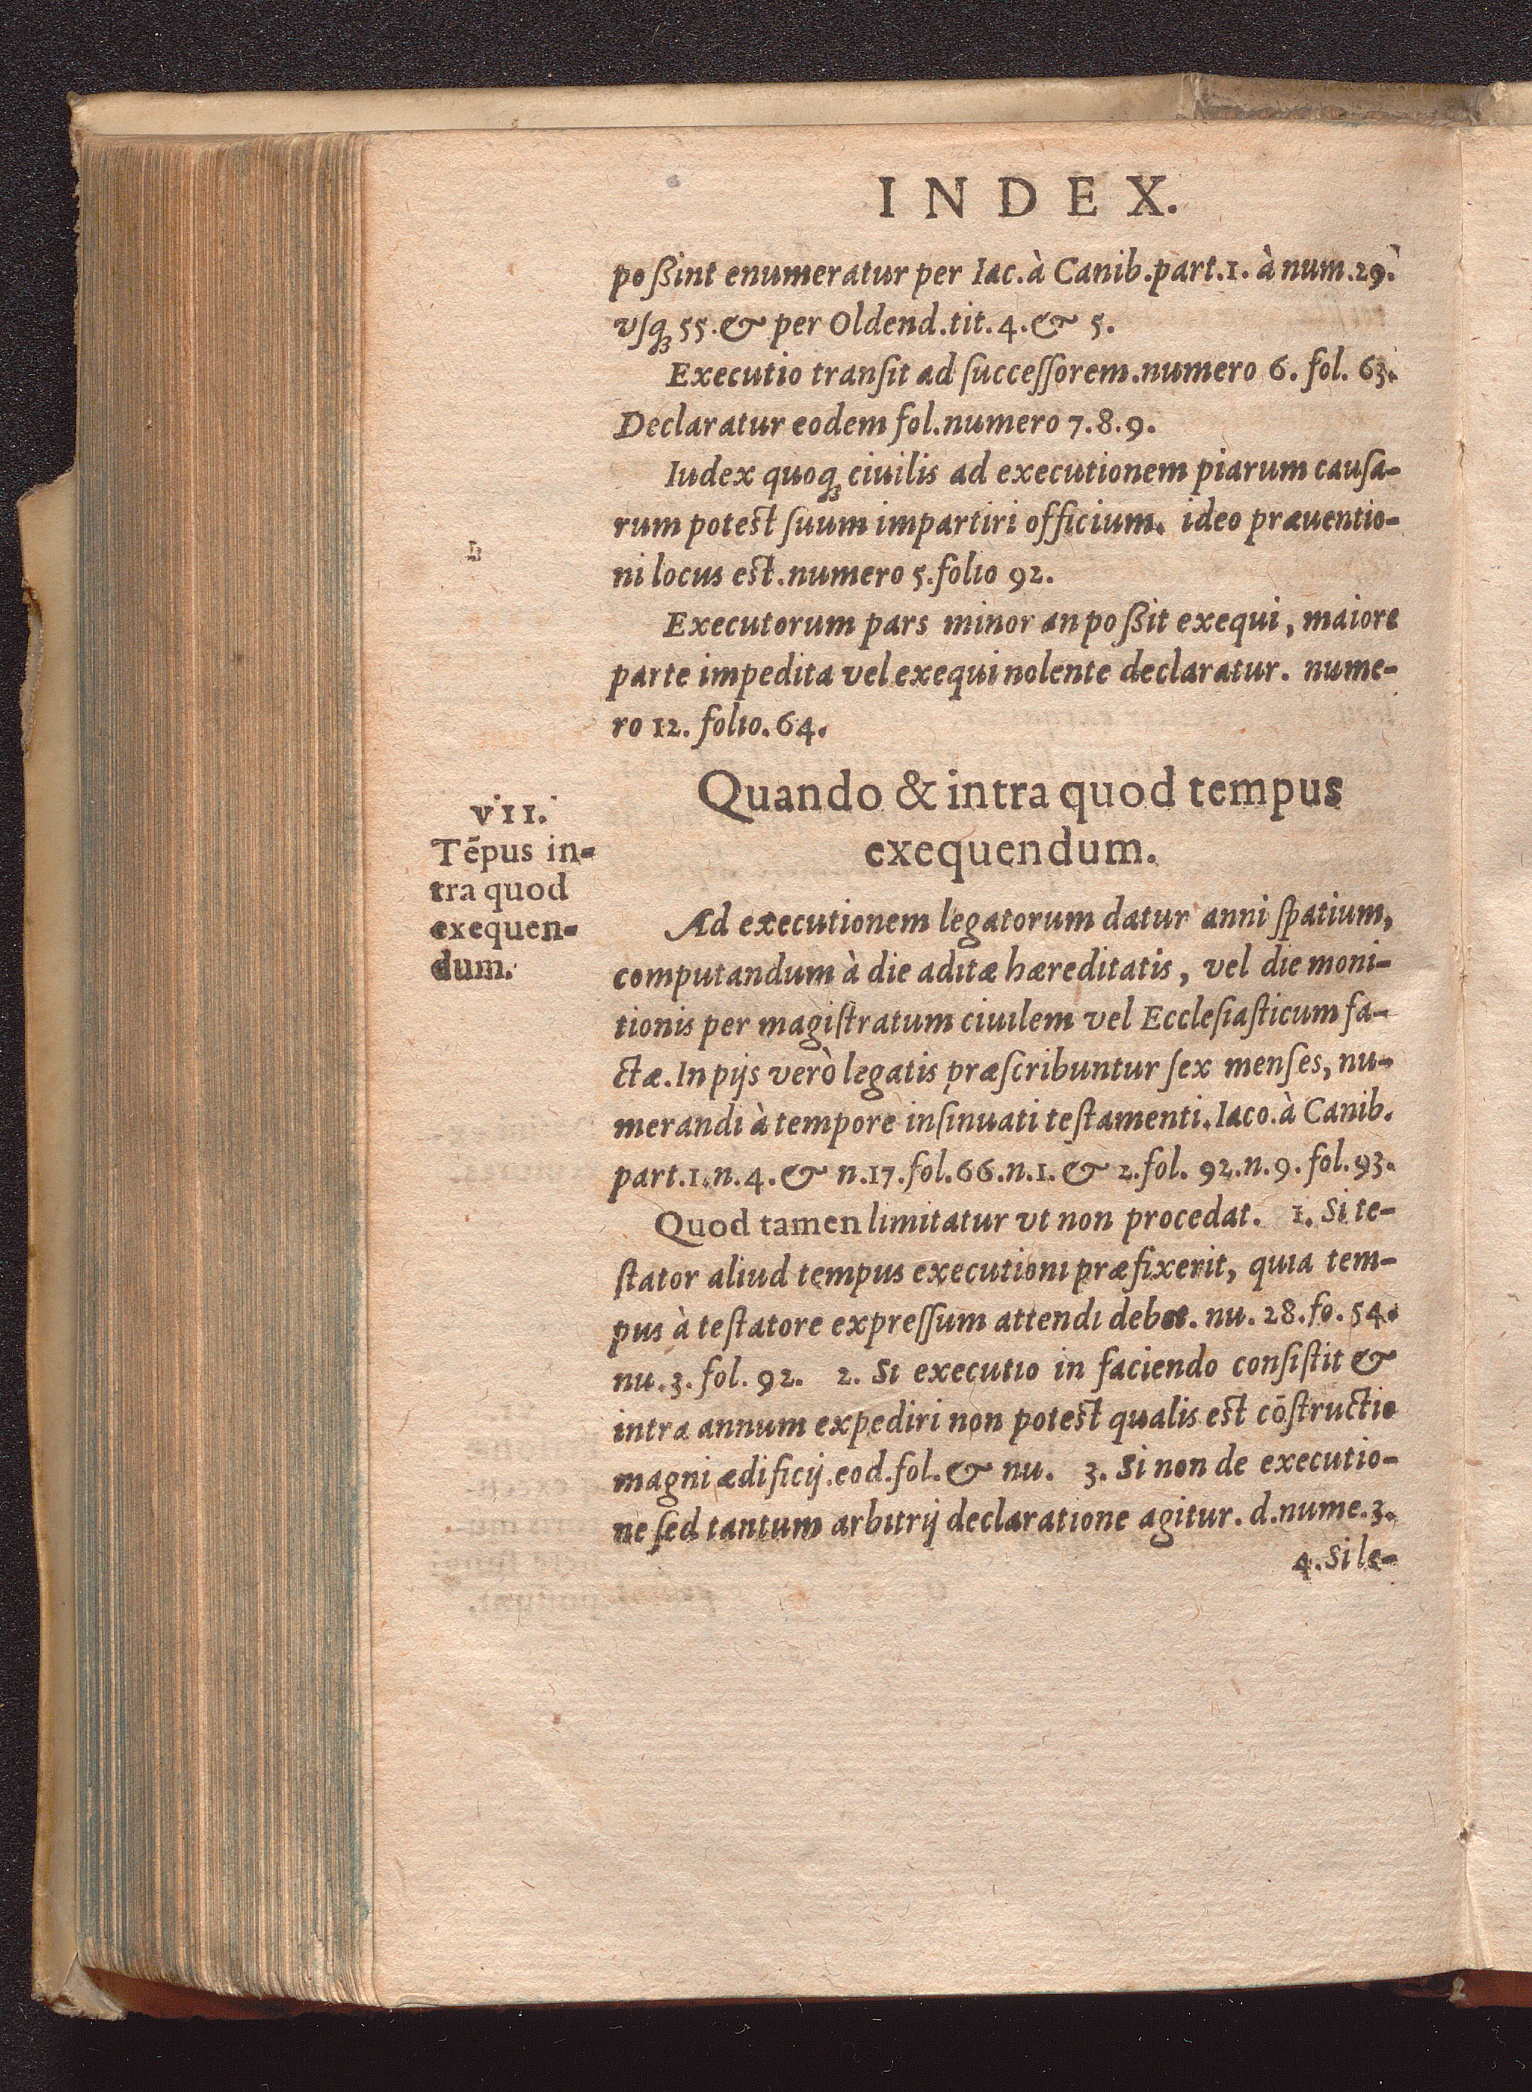 INDEX.
poßint enumeratur per Iac. à Canib. part. 1. à num. 29.
vſq́ꝫ 55. & per Oldend. tit. 4. & 5.
Executio tranſit ad ſucceſſorem. numero 6. fol. 63.
Declaratur eodem fol. numero 7. 8. 9.
Iudex quoqꝫ ciuilis ad executionem piarum cauſa-
rum poteſt ſuum impartiri officium. ideo præuentio-
ni locus eſt. numero 5. folio 92.
Executorum pars minor an poßit exequi, maiore
parte impedita vel exequi nolente declaratur. nume-
ro 12. folio. 64.
Quando & intra quod tempus
exequendum.
VII.
Tẽpus in-
tra quod
exequen-
dum.
Ad executionem legatorum datur anni ſpatium,
computandum à die aditæ hæreditatis, vel die moni-
tionis per magiſtratum ciuilem vel Eccleſiaſticum fa-
ctæ. In pijs verò legatis præſcribuntur ſex menſes, nu-
merandi à tempore inſinuati teſtamenti. Iaco. à Canib.
part. 1. n. 4. & n. 17. fol. 66. n. 1. & 2. fol. 92. n. 9. fol. 93.
Quod tamen limitatur vt non procedat. 1. Si te-
ſtator aliud tempus executioni præfixerit, quia tem-
pus à teſtatore expreſſum attendi debet. nu. 28. fo. 54.
nu. 3. fol. 92. 2. Si executio in faciendo conſiſtit &
intra annum expediri non poteſt qualis eſt cõſtructio
magni ædificij. eod. fol. & nu. 3. Si non de executio-
ne ſed tantum arbitrij declaratione agitur. d. nume. 3.
4. Si le-